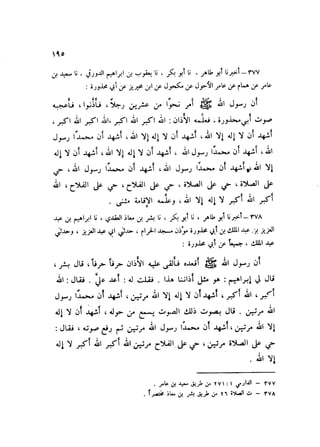 ١٩٥
٣٧٧ — أخبرنا أبو طاهر ، نا أبو بكر ، نا يعقوب بن إبراهيم الدورقي ، نا سعيد بن
عامر عن همام عن عامر الأحول عن مكحول عن ابن محيريز عن أبي محذورة :
أن رسول الله ﷺ أمر نحوا من عشرين رجلا ، فأذنوا ، فأعجبه
صوت أبي محذورة ، فعلمه الأذان : الله أكبر الله أكبر ، الله أكبر الله أكبر ،
أشهد أن لا إله إلا الله ، أشهد أن لا إله إلا الله ، أشهد أن محمدا رسول
الله ، أشهد أن محمدا رسول الله ، أشهد أن لا إله إلا الله ، أشهد أن لا إله
إلا الله ، أشهد أن محمدا رسول الله ، أشهد أن محمدا رسول الله ، حي
على الصلاة ، حي على الصلاة ، حي على الفلاح ، حي على الفلاح ، الله
أكبر الله أكبر لا إله إلا الله ، وعلمه الإقامة مثنى .
٣٧٨ — أخبرنا أبو طاهر ، نا أبو بكر ، نا بشر بن معاذ العقدي ، نا إبراهيم بن عبد
العزيز بن عبد الملك بن أبي محذورة مؤذن مسجد الحرام ، حدثني أبي عبد العزيز ، وحدثني
عبد الملك ، جميعا عن أبي محذورة :
أن رسول الله ﷺ أقعده فألقى عليه الأذان حرفا حرفا ، قال بشر ،
قال لي إبراهيم : هو مثل أذاننا هذا . فقلت له : أعد علي . قال : الله أكبر
الله أكبر ، أشهد أن لا إله إلا الله مرتين ، أشهد أن محمدا رسول
الله مرتين . قال بصوت ذلك الصوت يسمع من حوله ، أشهد أن لا إله
إلا الله مرتين ، أشهد أن محمدا رسول الله مرتين ثم رفع صوته ، فقال :
حي على الصلاة مرتين ، حي على الفلاح مرتين الله أكبر الله أكبر لا إله
إلا الله .
٣٧٧ — الدارمي ١ : ٢٧١ من طريق سعيد بن عامر .
٣٧٨ — ت الصلاة ٢٦ من طريق بشر بن معاذ مختصرا .